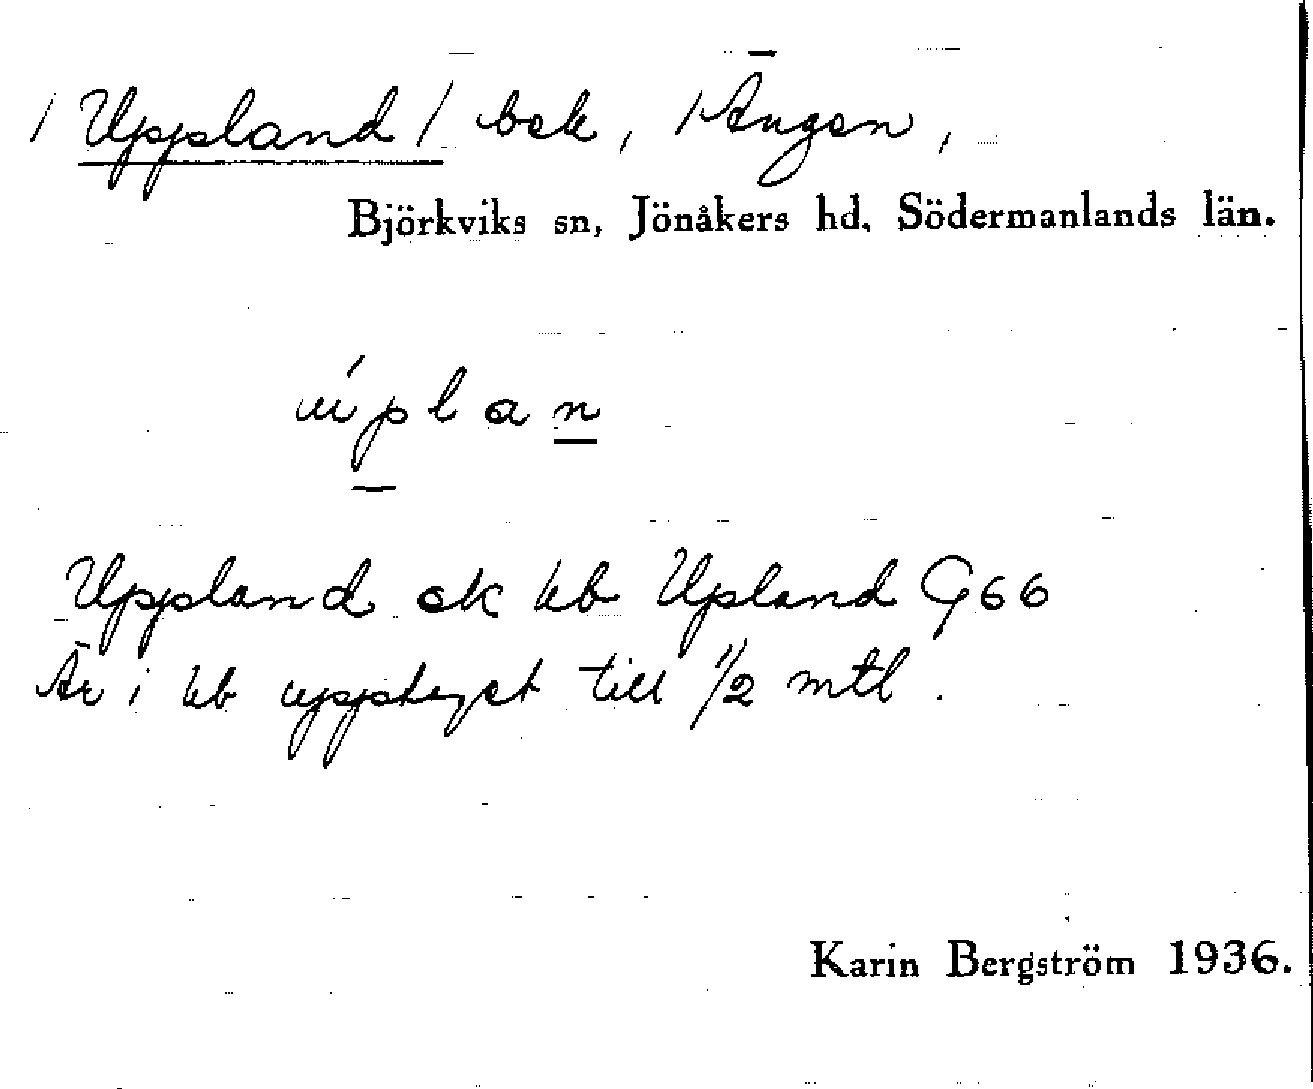 / Uppland / bek, / Ängen,
Björkviks sn, Jönåkers hd. Södermanlands län.
úplan
Uppland ek kb Upland G66
Är i kb upptaget till 1/2 mtl.
Karin Bergström 1936.